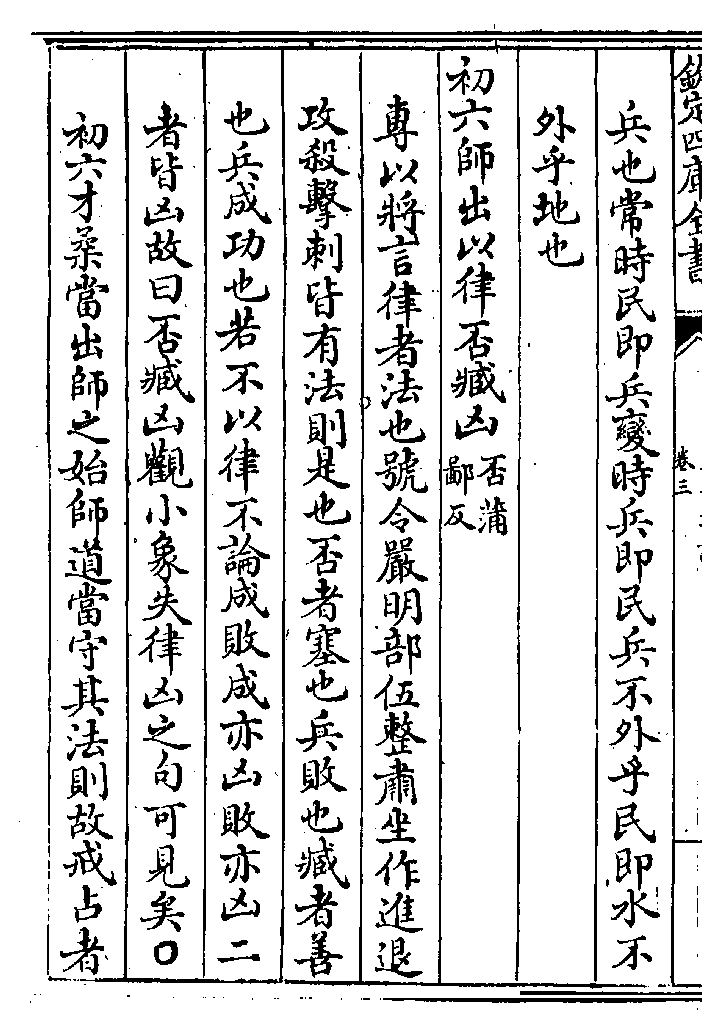 欽定四庫全書
卷三
兵也常時民即兵變時兵即民兵不外乎民即水不
外乎地也
初六師出以律否臧凶否蒲鄙反
專以將言律者法也號令嚴明部伍整肅坐作進退
攻殺擊刺皆有法則是也否者塞也兵敗也臧者善
也兵成功也若不以律不論成敗成亦凶敗亦凶二
者皆凶故曰否臧凶觀小象失律凶之句可見矣○
初六才柔當出師之始師道當守其法則故戒占者